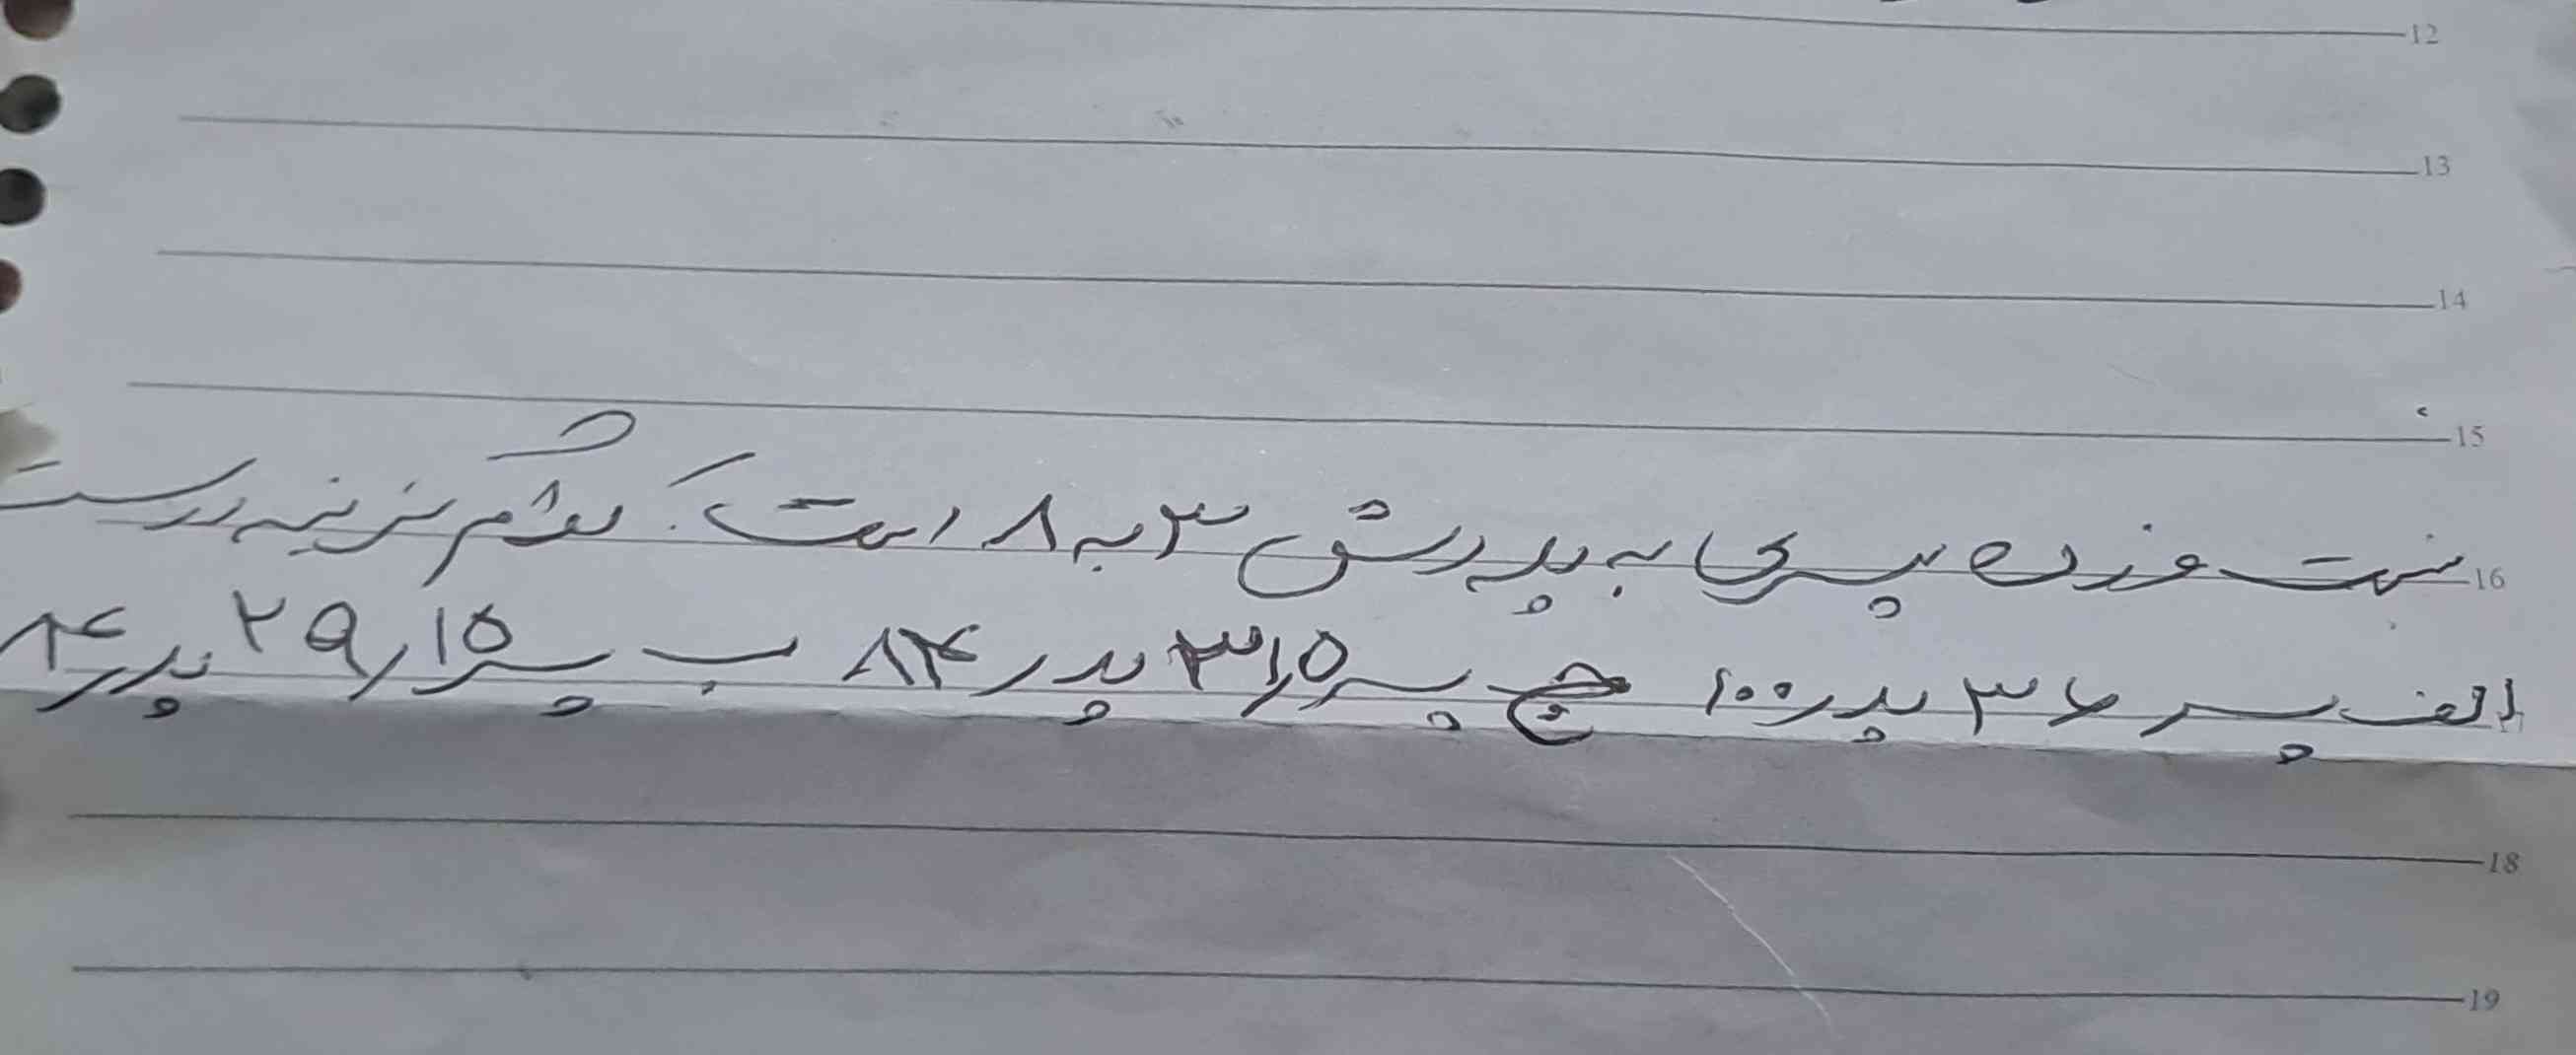 12
13
14
15
16 نسبت وزن پسری به پدرش ۳ به ۸ است. کدام گزینه درست
الف پسر ۳۶ پدر ۱۰۰ ج پسر ۳۱/۵ پدر ۸۴ ب پسر ۲۹/۱۵ پدر ۸۴
18
19